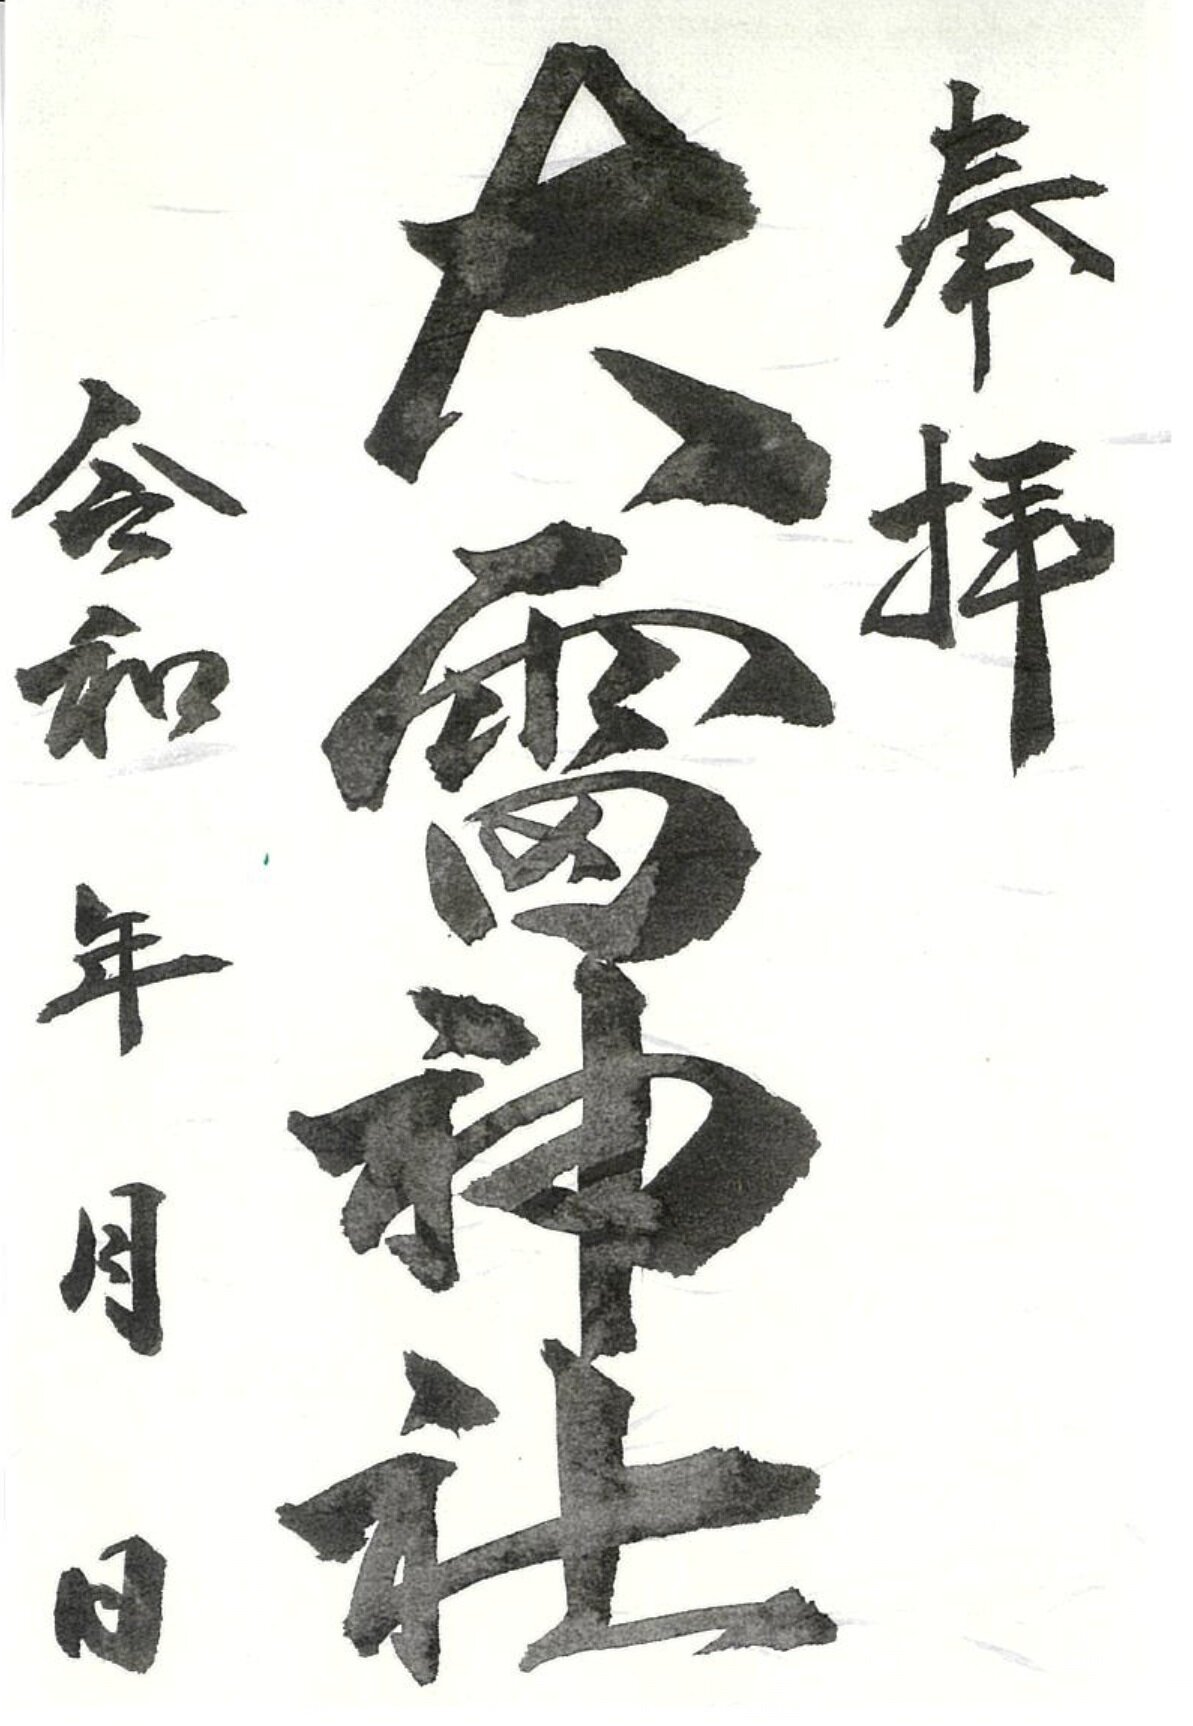 奉拝
大雷神社
令和 年 月 日